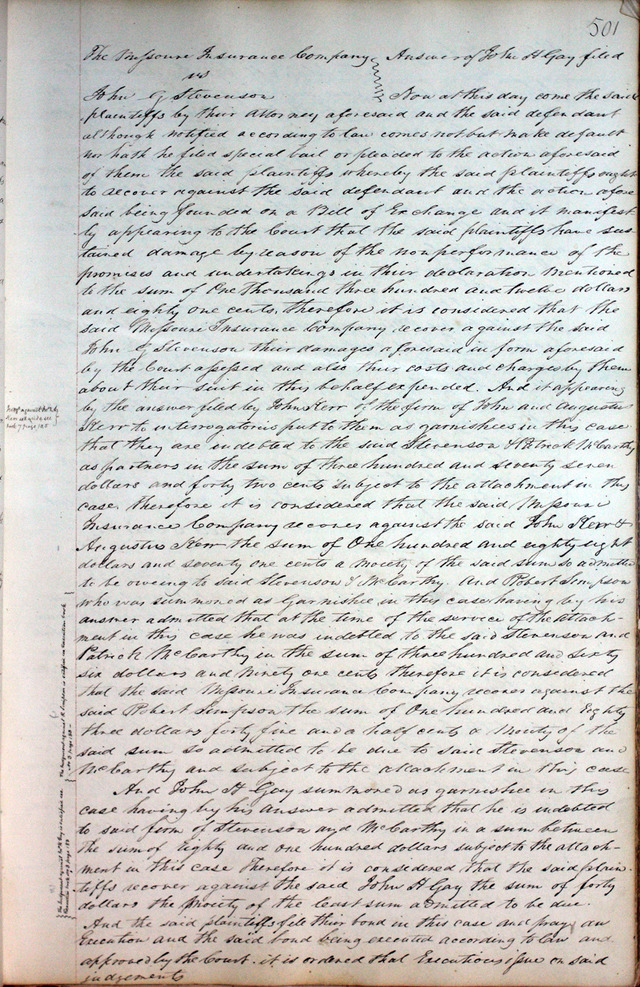 501
The Missouri Insurance Company Answer of John H Gay filed
vs
John G Stevenson Now at this day come the said
plaintiffs by their Attorney aforesaid and the said defendant
although notified according to law comes not but make default
nor hath he filed special bail or pleaded to the action aforesaid
of them the said plaintiffs whereby the said plaintiffs ought
to recover against the said defendant and the action afore
said being founded on a Bill of Exchange and it manifest
ly appearing to the Court that the said plaintiffs have sus
tained damage by reason of the nonperformance of the
promises and undertakings in their declaration mentioned
to the sum of One thousand three hundred and twelve dollars
and eighty one cents, therefore it is considered that the
said Missouri Insurance Company recover against the said
John G Stevenson their damages aforesaid in form aforesaid
by the Court assessed and also their costs and charges by them
about their suit in this behalf expended. And it appearing
by the answer filed by John Kerr of the firm of John and Augustus
Kerr to interrogatories put to them as garnishees in this case
that they are indebted to the said Stevenson & Patrick McCarthy
as partners in the sum of three hundred and seventy seven
dollars and forty two cents subject to the attachment in this
case. therefore it is considered that the said Missouri
Insurance Company recover against the said John Kerr &
Augustus Kerr the sum of One hundred and eighty eight
dollars and seventy one cents a moiety of the said sum so admitted
to be oweing to said Stevenson & McCarthy. And Robert Simpson
who was summoned as Garnishee in this case having by his
answer admitted that at the time of the service of the attach-
ment in this case he was indebted to the said Stevenson and
Patrick McCarthy in the sum of three hundred and sixty
six dollars and ninety one cents therefore it is considered
that the said Missouri Insurance Company recover against the
said Robert Simpson the sum of One hundred and Eighty
three dollars forty five and a half cents a moiety of the
said sum so admitted to be due to said Stevenson and
McCarthy and subject to the attachment in this case
And John H Gay summoned as garnishee in this
case having by his answer admitted that he is indebted
to said firm of Stevenson and McCarthy in a sum between
the sum of Eighty and one hundred dollars subject to the attach-
ment in this case Therefore it is considered that the said plain-
tiffs recover against the said John H Gay the sum of forty
dollars the moiety of the least sum admitted to be due.
And the said plaintiffs file their bond in this case and pray an
Execution and the said bond being executed according to law and
approved by the Court. it is ordered that Executions issue on said
judgements